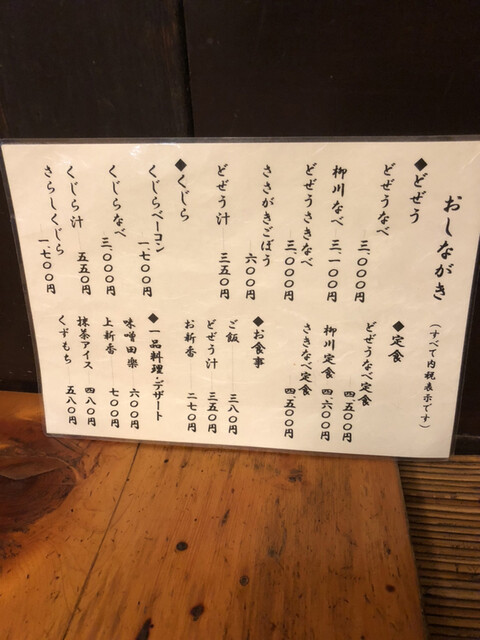 おしながき
(すべて内税表示です)
◆どぜう
どぜうなべ 三、〇〇〇円
柳川なべ 三、一〇〇円
どぜうさきなべ 三、〇〇〇円
ささがきごぼう 六〇〇円
どぜう汁 三五〇円
◆くじら
くじらベーコン 一、七〇〇円
くじらなべ 三、〇〇〇円
くじら汁 五五〇円
さらしくじら 一、七〇〇円
◆定食
どぜうなべ定食 四五〇〇円
柳川定食 四六〇〇円
さきなべ定食 四五〇〇円
◆お食事
ご飯 三八〇円
どぜう汁 三五〇円
お新香 二七〇円
◆一品料理・デザート
味噌田楽 六〇〇円
上新香 七〇〇円
抹茶アイス 四八〇円
くずもち 五八〇円